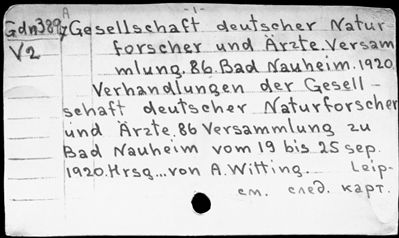 -1-
A
Gdn389z Gesellschaft deutscher Natur-
V2 forscher und Ärzte. Versam
mlung. 86. Bad Nauheim. 1920
Verhandlungen der Gesell-
schaft deutscher Naturforscher
und Ärzte. 86 Versammlung zu
Bad Nauheim vom 19 bis 25 sep.
1920. Hrsg... von A. Witting. Leip-
см. след. карт.